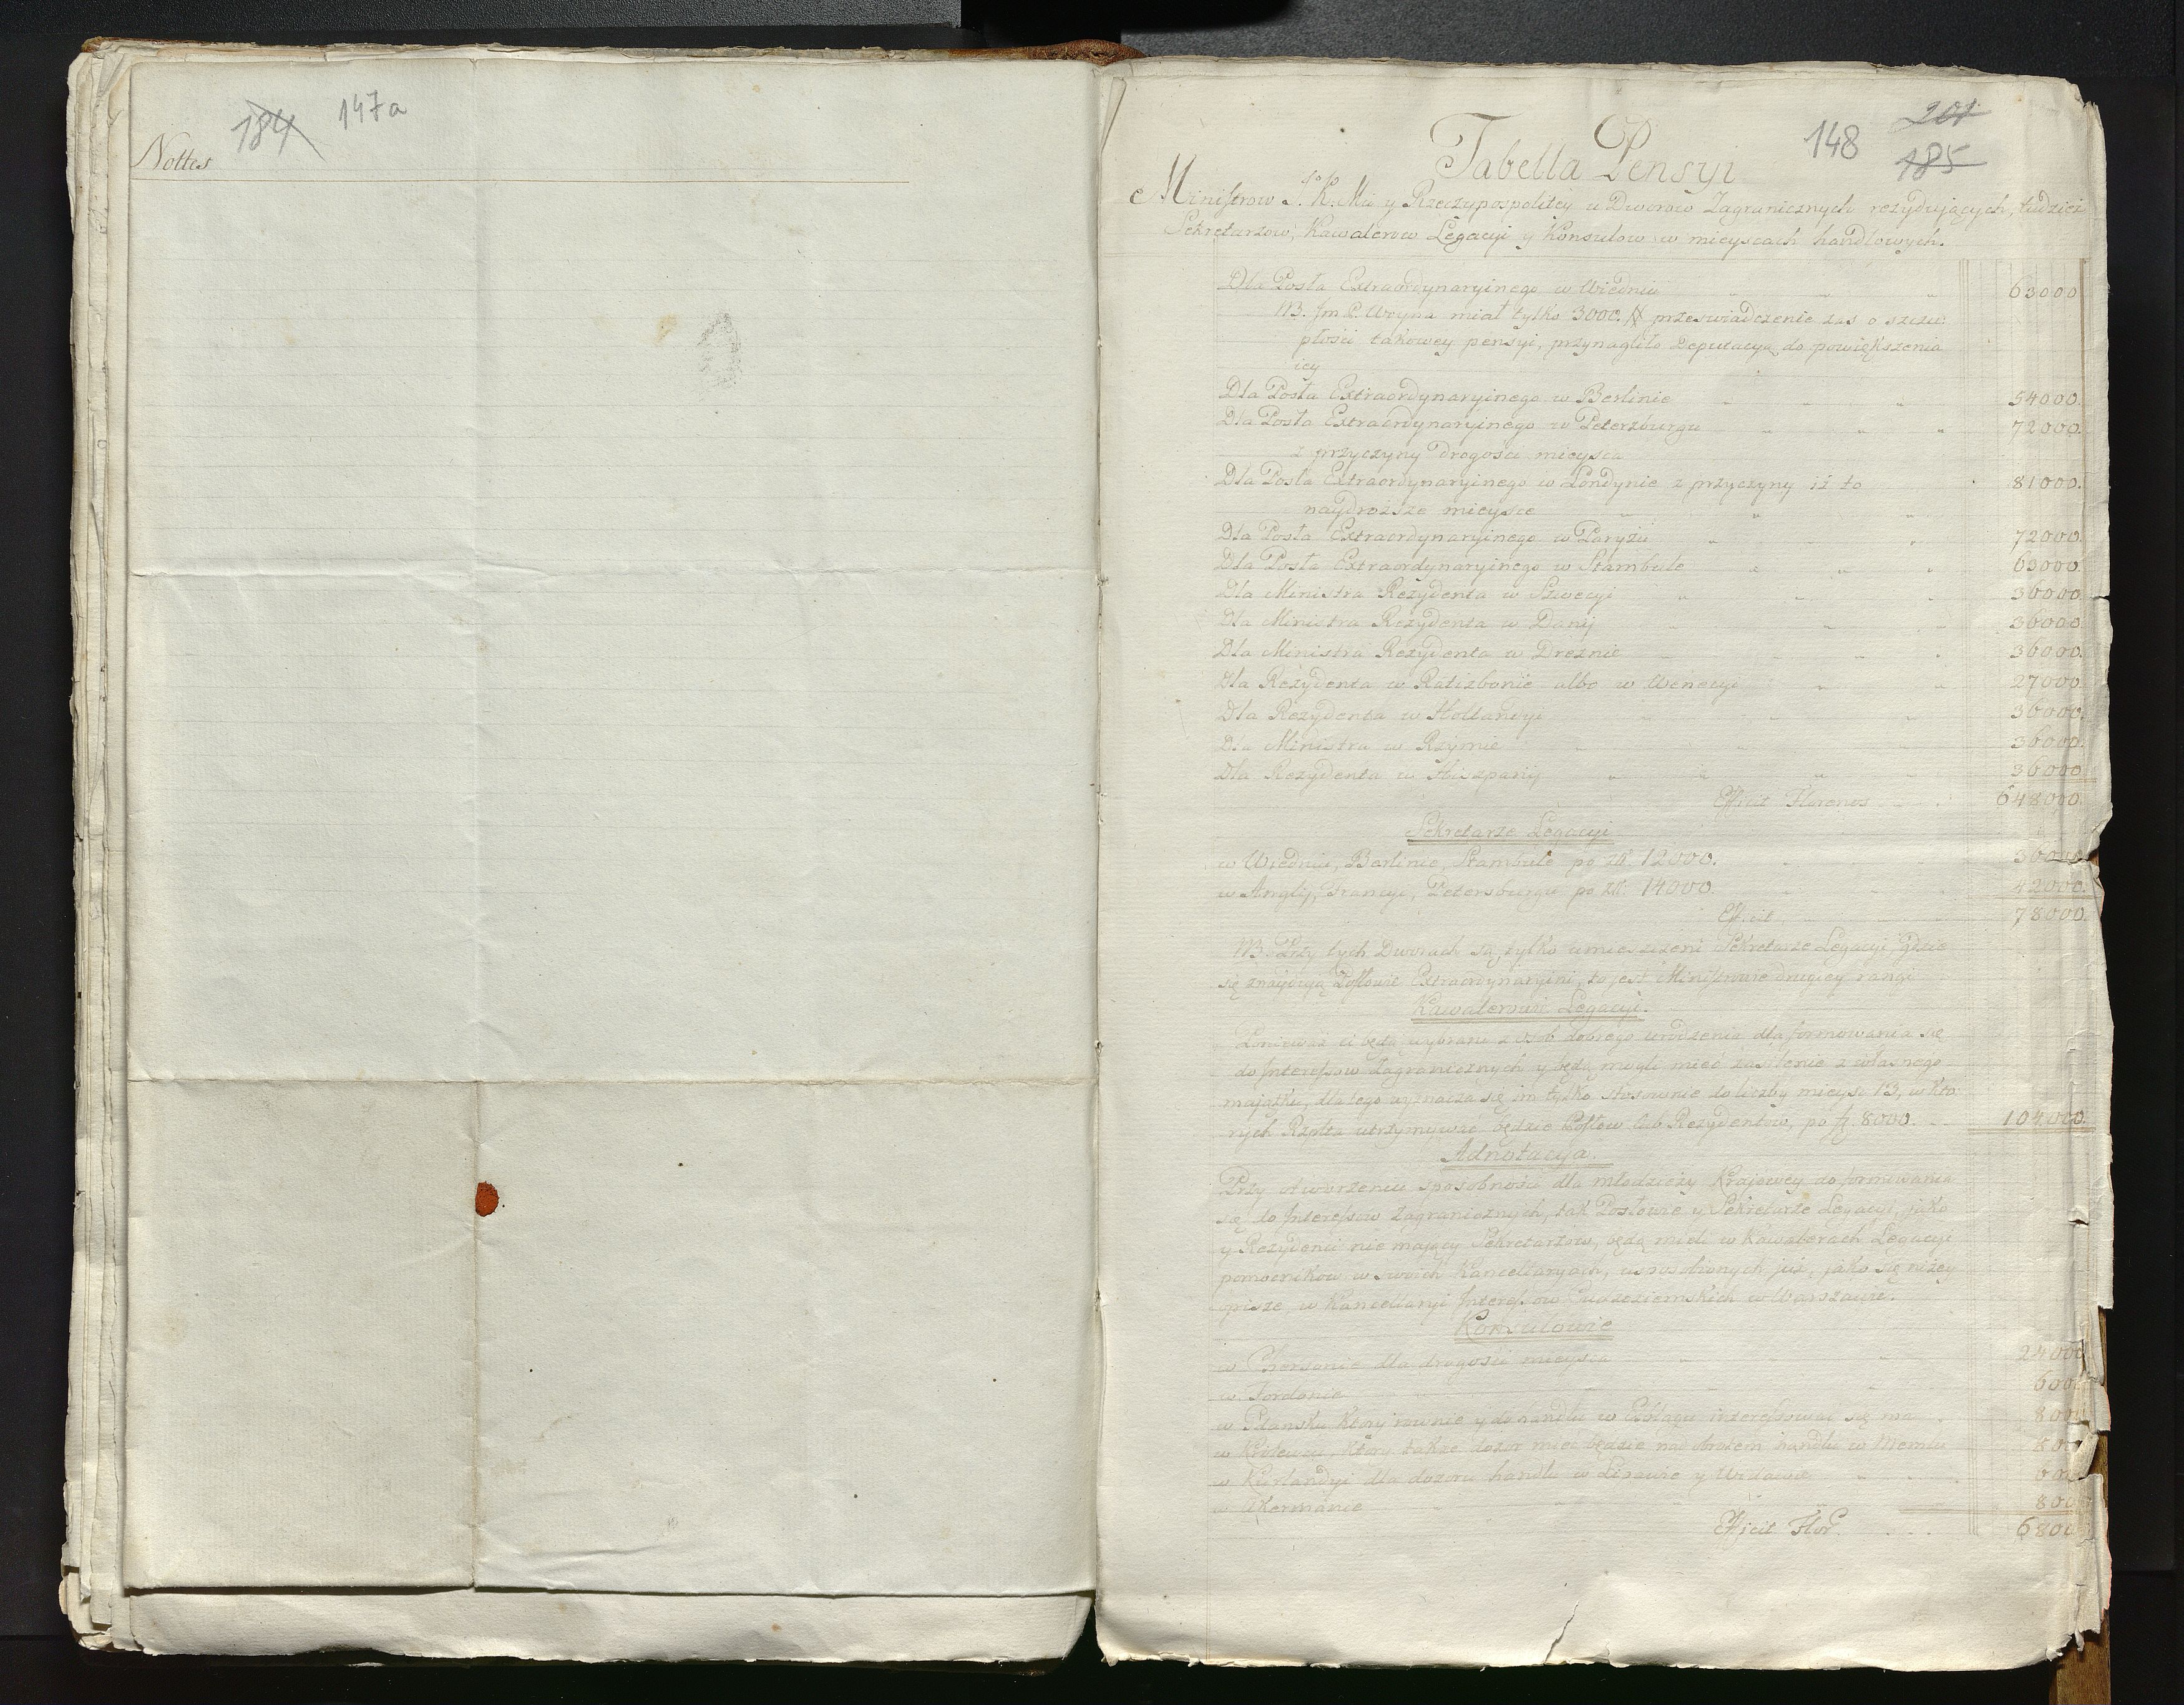 184 147a
Nottes
201
148 185
Tabella Pensyi
Ministrow J. K. Mci y Rzeczypospolitey u Dworow Zagranicznych rezydujących, tudzież
Sekretarzow, Kawalerow Legacyi y Konsulow w mieyscach handlowych.
Dla Posła Extraordynaryinego w Wiedniu 63000
NB. Jm P. Woyna miał tylko 3000. # przeswiadczenie zas o szczu
płości takowey pensyi, przynagliło Deputacyą do powiększenia
iey
Dla Posła Extraordynaryinego w Berlinie 54000.
Dla Posła Extraordynaryinego w Petersburgu 72000.
z przyczyny drogości mieysca
Dla Posła Extraordynaryinego w Londynie z przyczyny iż to 81000.
naydroższe mieysce
Dla Posła Extraordynaryinego w Paryżu 72000.
Dla Posła Extraordynaryinego w Stambule 63000.
Dla Ministra Rezydenta w Szwecyi 36000.
Dla Ministra Rezydenta w Danij 36000.
Dla Ministra Rezydenta w Dreznie 36000.
Dla Rezydenta w Ratizbonie albo w Wenecyi 27000.
Dla Rezydenta w Hollandyi 36000.
Dla Ministra w Rzymie 36000.
Dla Rezydenta w Hiszpanij 36000.
Efficit Florenos 648000.
Sekretarze Legacyi
w Wiedniu, Berlinie, Stambule po zł. 12000. 36000
w Anglij, Francyi, Petersburgu po zł. 14000. 42000.
Efficit 78000.
NB. Przy tych Dworach są tylko umieszczeni Sekretarze Legacyi gdzie
się znayduią Posłowie Extraordynaryini, to jest Ministrowie drugiey rangi
Kawalerowie Legacyi.
Ponieważ ci będą wybrani z osob dobrego urodzenia dla formowania się
do Interessow Zagranicznych y będą mogli mieć zasilenie z własnego
majątku, dla tego wyznacza się im tylko stosownie do liczby mieysc 13, w kto
rych Rzplta utrzymywać będzie Posłow lub Rezydentow, po fl. 8000. 104000.
Adnotacya.
Przy otworzeniu sposobności dla młodzieży Krajowey do formowania
się do Interessow Zagranicznych, tak Posłowie y Sekretarze Legacyi, jako
y Rezydenci nie mający Sekretarzow, będą mieli w Kawalerach Legacyi
pomocnikow w swoich Kancellaryach, usposobionych już, jako się niżey
opisze, w Kancellaryi Interessow Cudzoziemskich w Warszawie.
Konsulowie
w Chersonie dla drogości mieysca 24000
w Fordonie 600
w Gdansku ktory rownie y do handlu w Elblągu interessować się ma 800
w Krolewcu, ktory także dozor mieć będzie nad obrotem handlu w Memlu 800
w Kurlandyi dla dozoru handlu w Lipawie y Windawie 600
w Akermanie 800
Efficit Flor. 6800